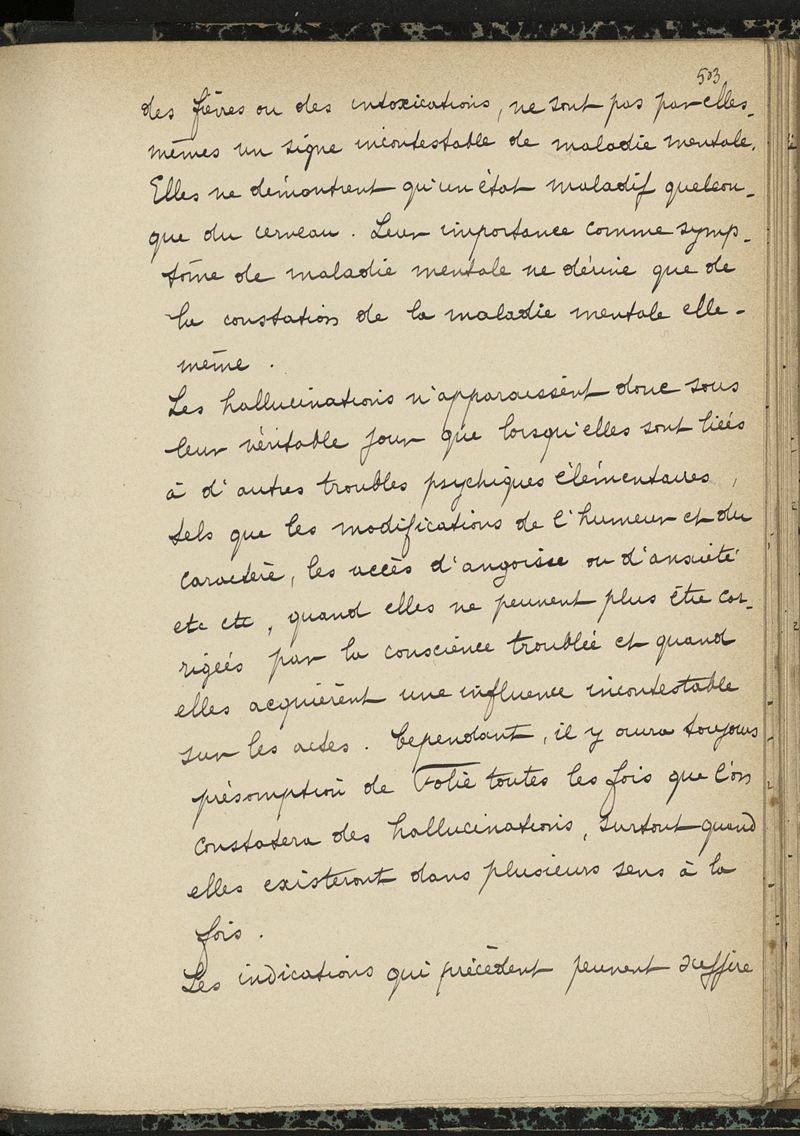 503
des fièvres ou des intoxications, ne sont pas par elles-
mêmes un signe incontestable de maladie mentale.
Elles ne démontrent qu'un état maladif quelcon-
que du cerveau. Leur importance comme symp-
tôme de maladie mentale ne dérive que de
la constation de la maladie mentale elle-
même.
Les hallucinations n'apparaissent donc sous
leur véritable jour que lorsqu'elles sont liées
à d'autres troubles psychiques élémentaires,
tels que les modifications de l'humeur et du
caractère, les accès d'angoisse ou d'anxiété
etc etc, quand elles ne peuvent plus être cor-
rigées par la conscience troublée et quand
elles acquièrent une influence incontestable
sur les actes. Cependant, il y aura toujours
présomption de Folie toutes les fois que l'on
constatera des hallucinations, surtout quand
elles existeront dans plusieurs sens à la
fois.
Les indications qui précèdent peuvent suffire